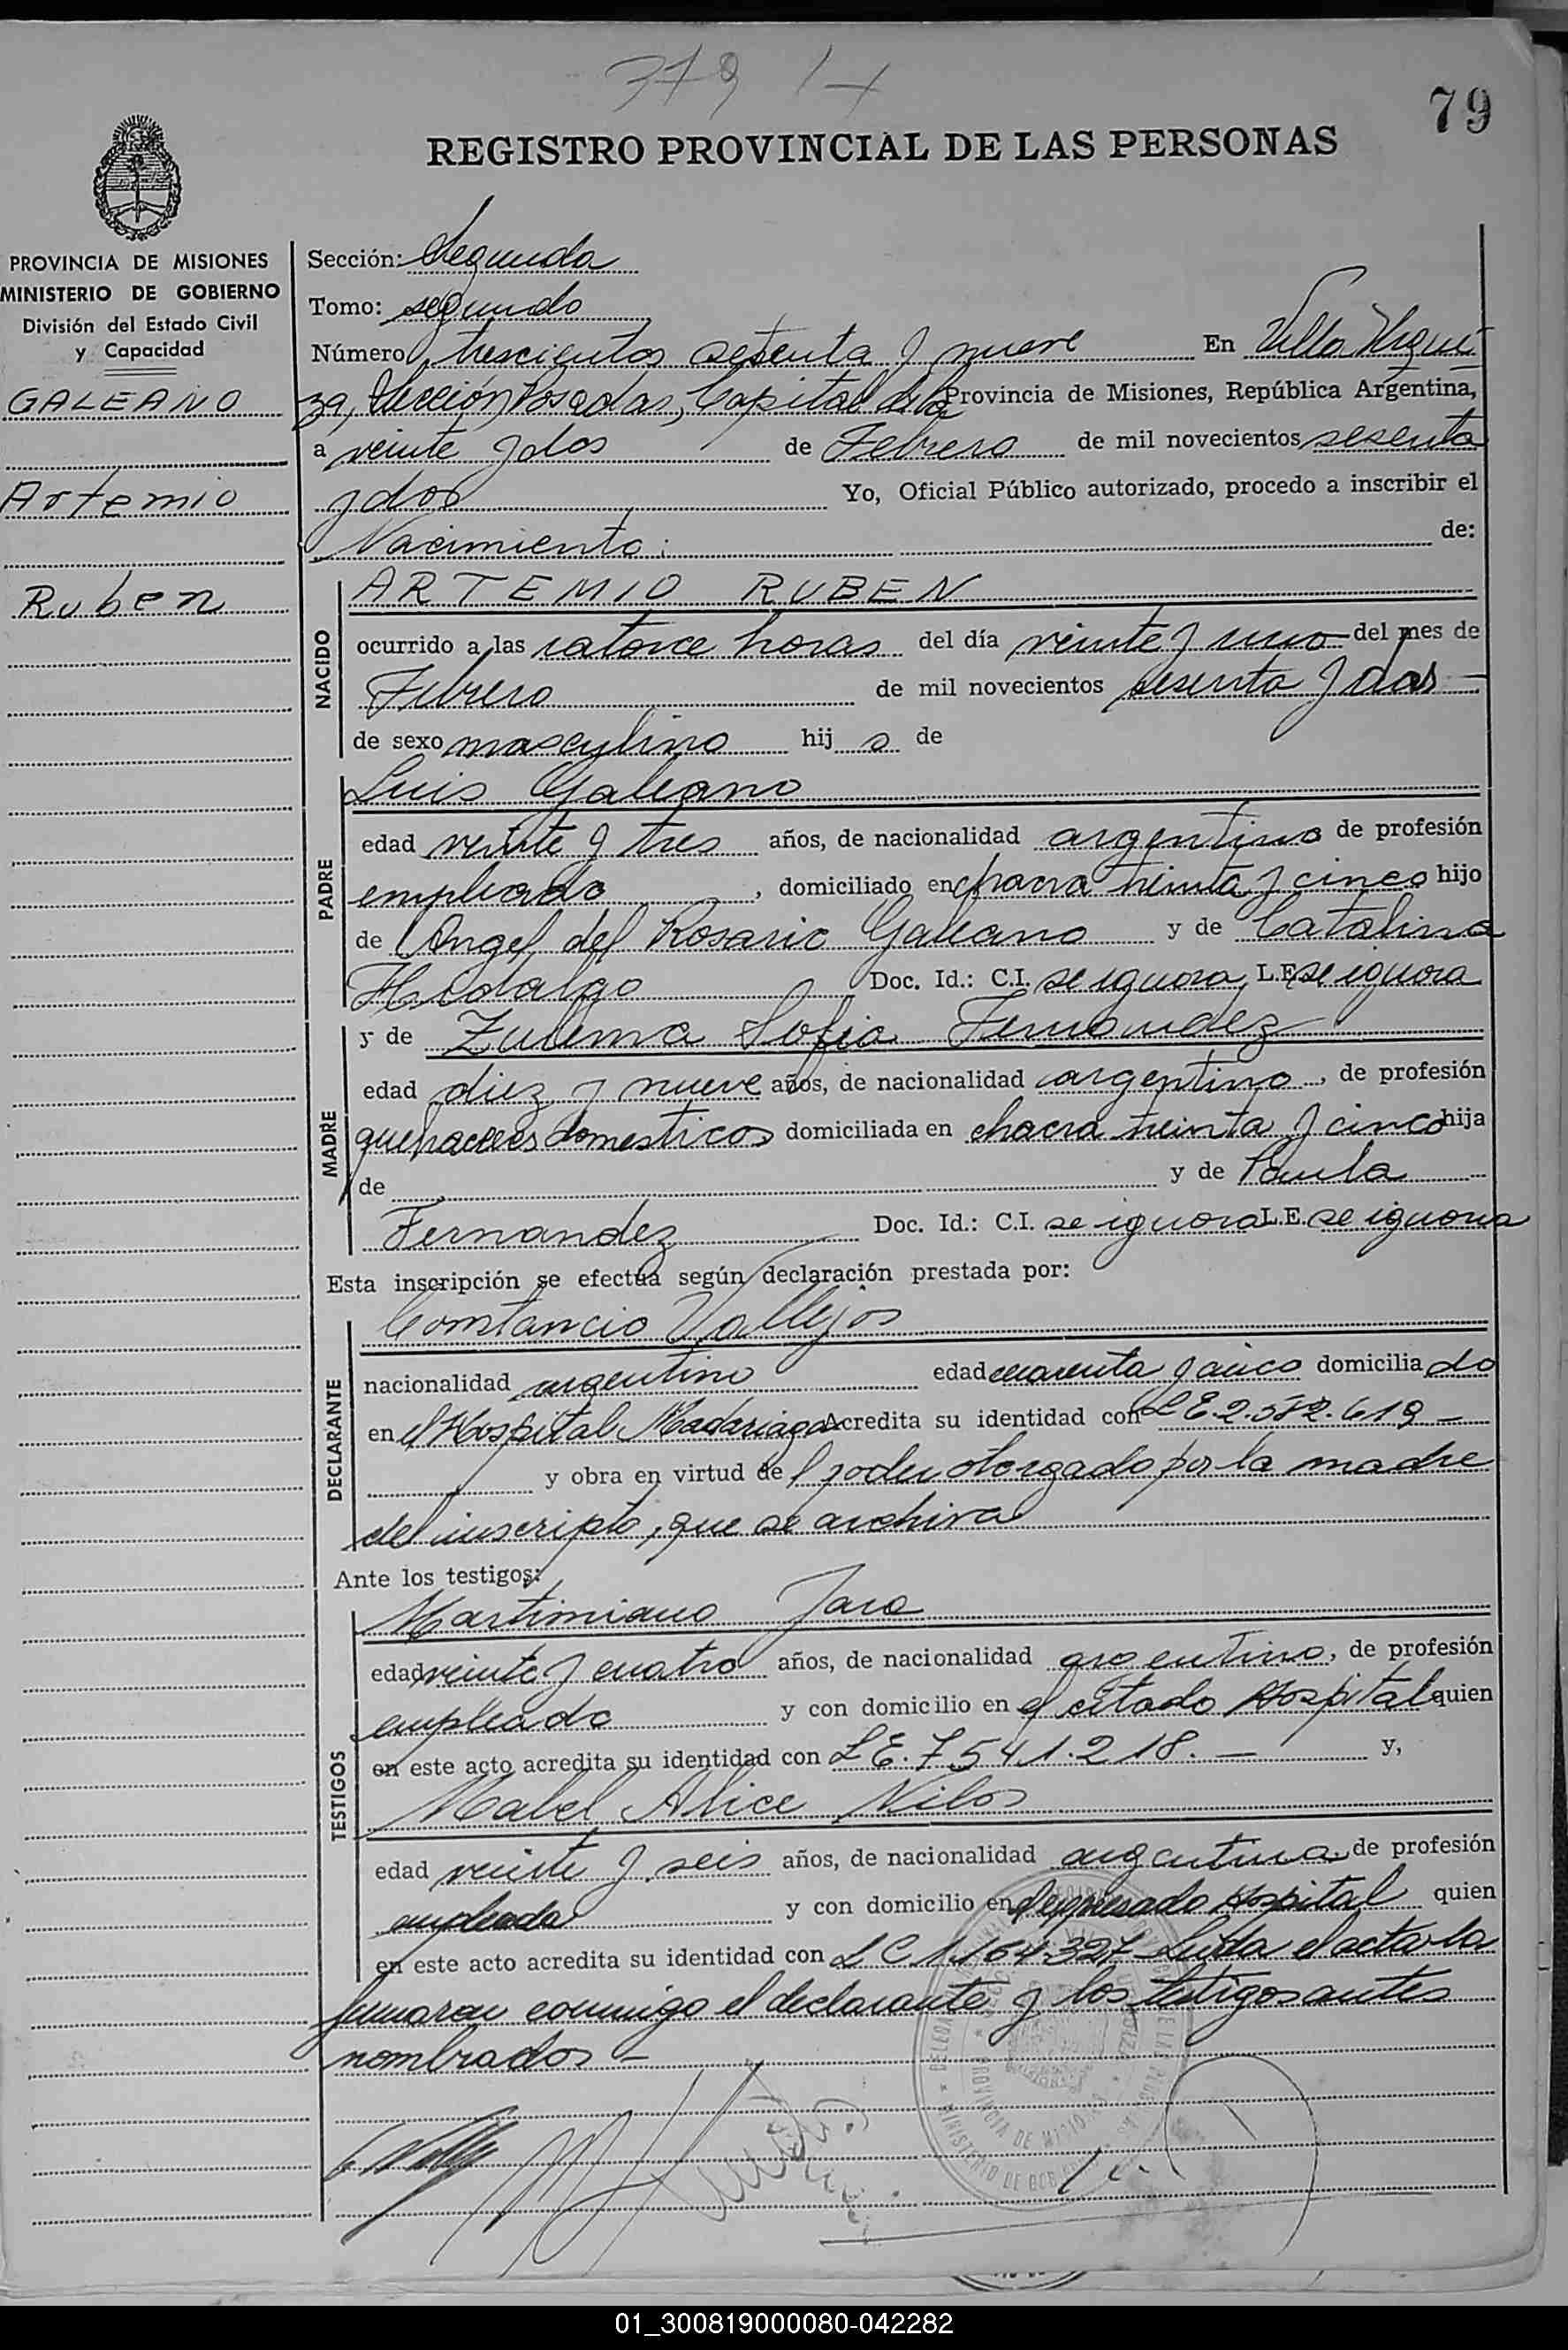 379
79
REGISTRO PROVINCIAL DE LAS PERSONAS
PROVINCIA DE MISIONES
MINISTERIO DE GOBIERNO
División del Estado Civil
y Capacidad
GALEANO
Artemio
Ruben
Sección: Segunda
Tomo: segundo
Número trescientos setenta y nueve En Villa Urqui
za, Sección Posadas, Capital de la Provincia de Misiones, República Argentina,
a veinte y dos de Febrero de mil novecientos sesenta
y dos Yo, Oficial Público autorizado, procedo a inscribir el
Nacimiento: de:
NACIDO
ARTEMIO RUBEN
ocurrido a las catorce horas del día veinte y uno del mes de
Febrero de mil novecientos sesenta y dos
de sexo masculino hij o de
PADRE
Luis Galeano
edad veinte y tres años, de nacionalidad argentino de profesión
empleado, domiciliado en chacra treinta y cinco hijo
de Angel del Rosario Galeano y de Catalina
Hidalgo Doc. Id.: C.I. se ignora L.E. se ignora
MADRE
y de Zulema Sofia Fernandez
edad diez y nueve años, de nacionalidad argentina, de profesión
quehaceres domesticos domiciliada en chacra treinta y cinco hija
de y de Paula
Fernandez Doc. Id.: C.I. se ignora L.E. se ignora
Esta inscripción se efectúa según declaración prestada por:
DECLARANTE
Constancio Vallejos
nacionalidad argentino edad cuarenta y cinco domicilia do
en el Hospital Madariaga Acredita su identidad con L E. 2.582.619 -
y obra en virtud de l poder otorgado por la madre
del inscripto, que se archiva
Ante los testigos:
TESTIGOS
Martimiano Jara
edad veinte y cuatro años, de nacionalidad argentino, de profesión
empleado y con domicilio en el citado Hospital quien
en este acto acredita su identidad con L E. 7541.218. - y,
Mabel Alice Nilos
edad veinte y seis años, de nacionalidad argentina de profesión
empleada y con domicilio en el expresado Hospital quien
en este acto acredita su identidad con L C 1.164.327 Leida el acta la
firmaron conmigo el declarante y los testigos antes
nombrados -
01_300819000080-042282